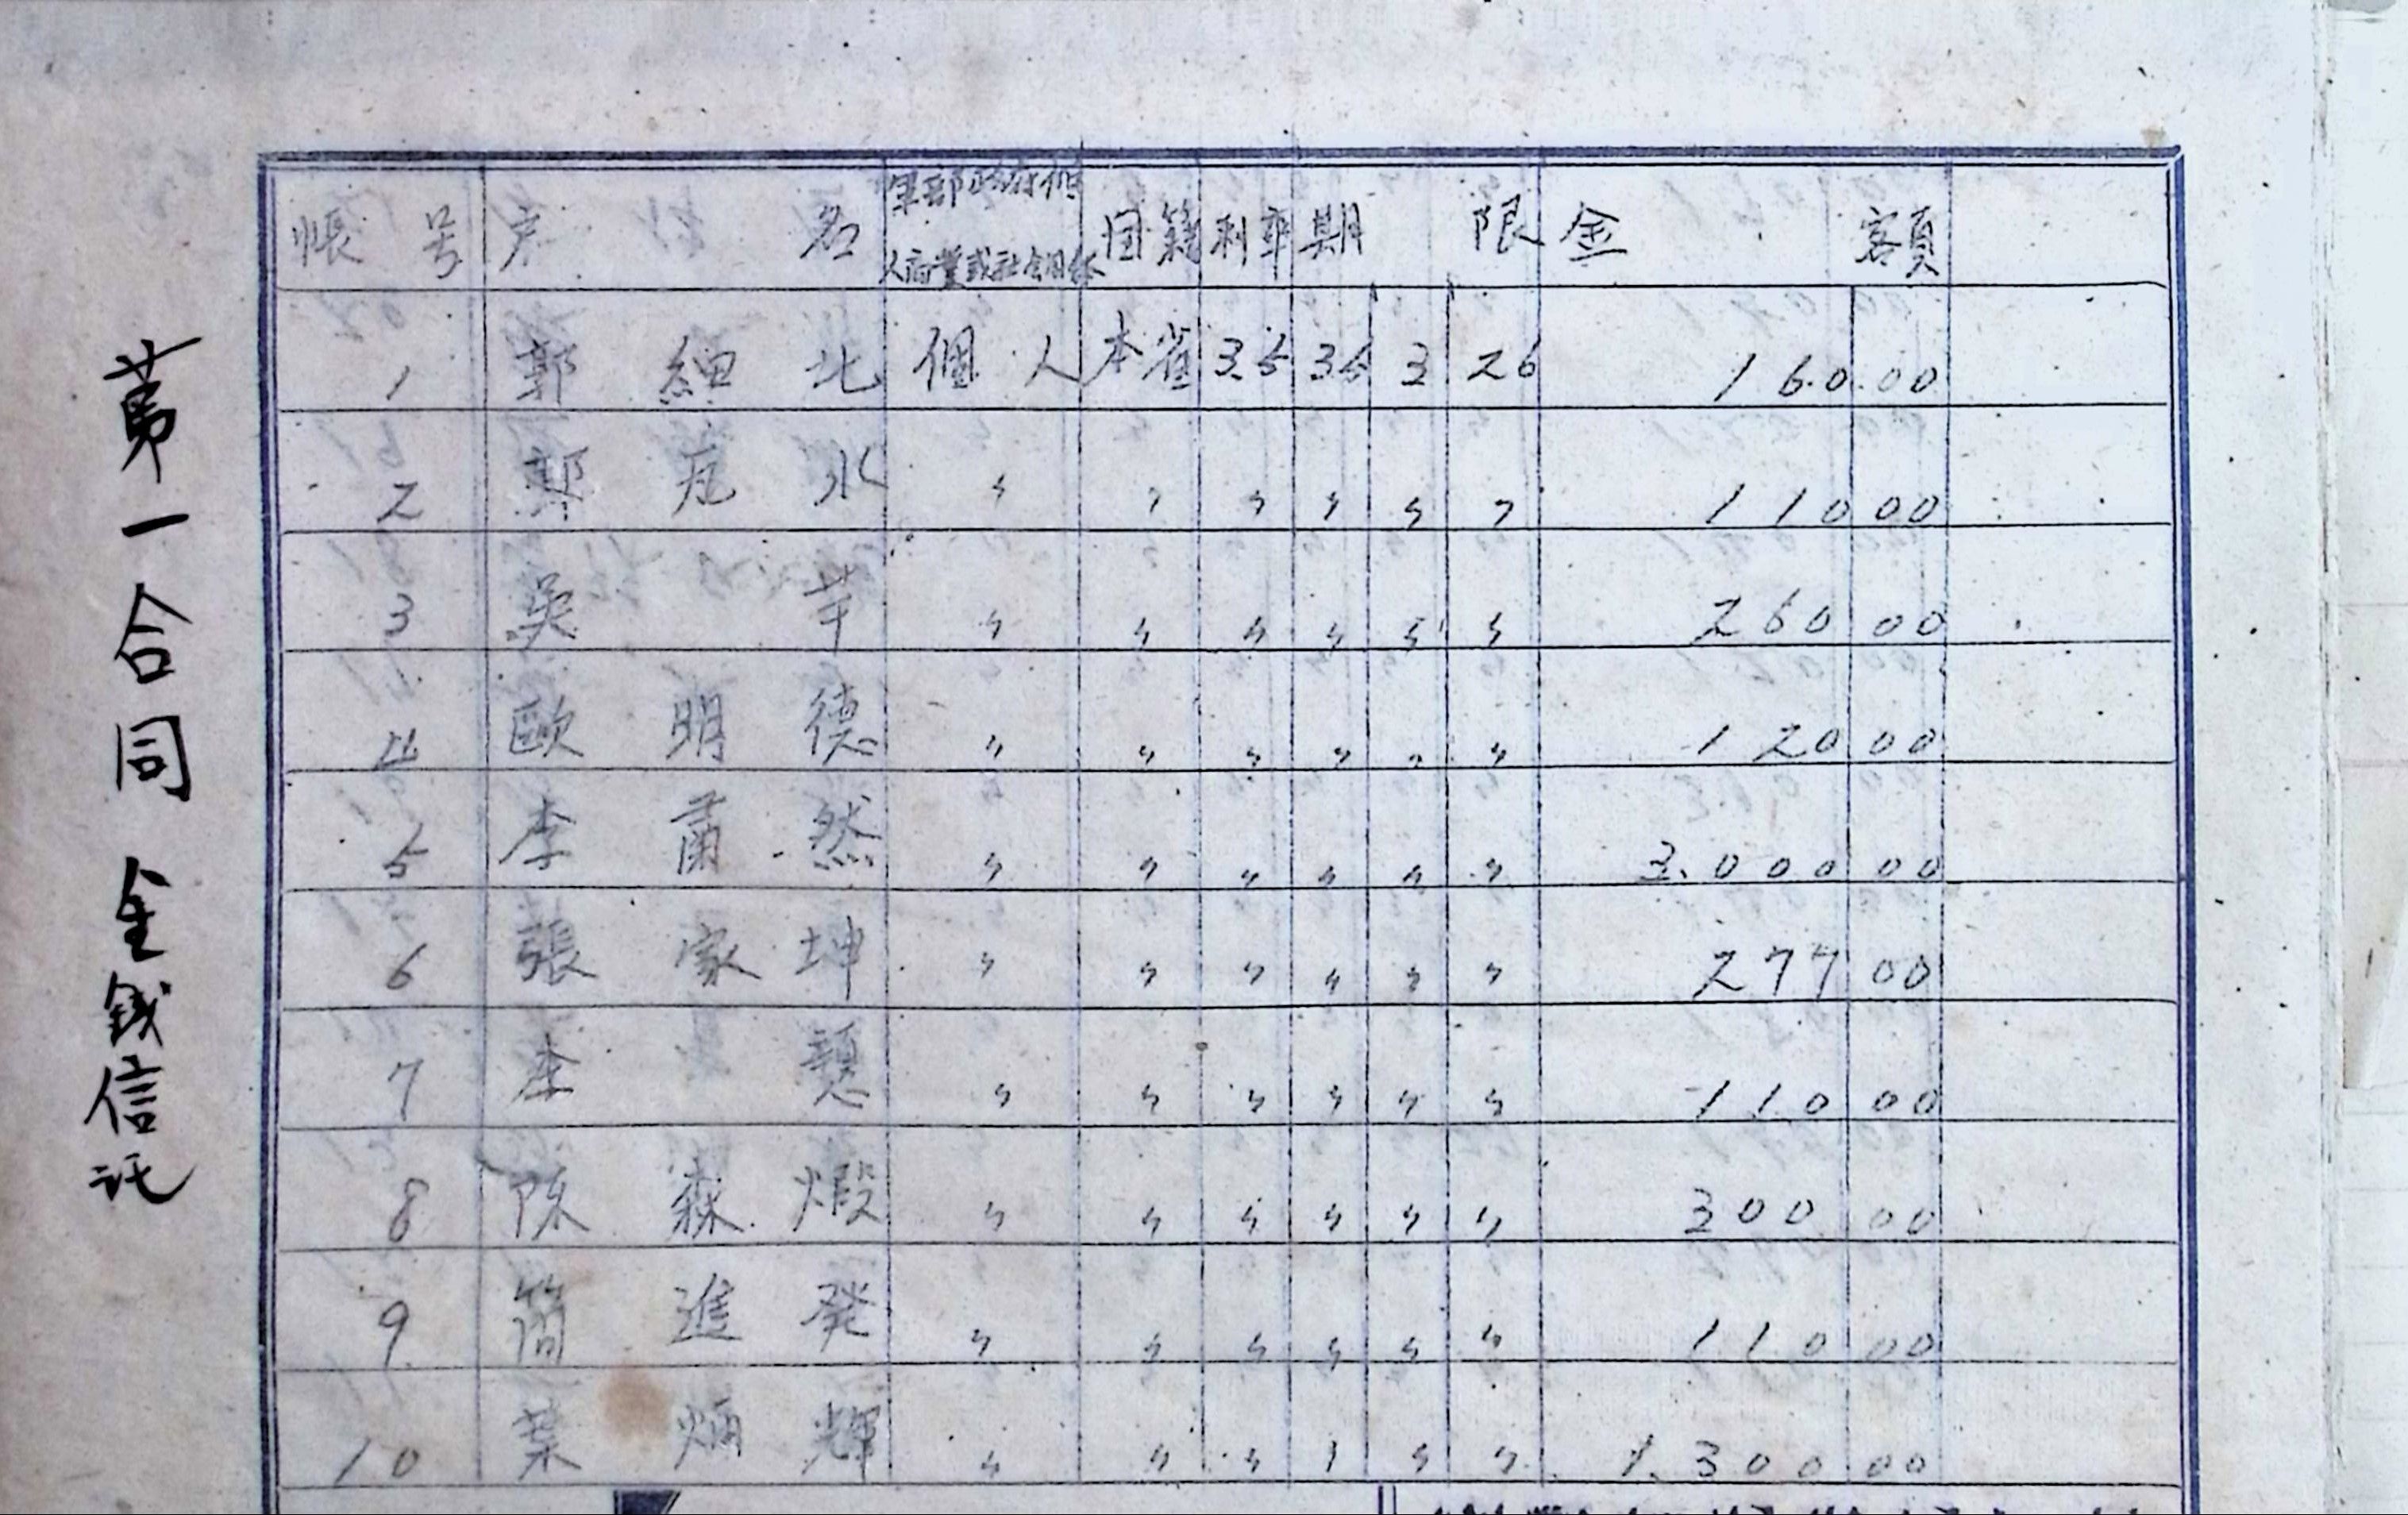 第一合同 金銭信託
帳号 户名 軍部政府個人商業或社会団体 国籍 利率 期限 金額
1 郭 細 北 個人 本省 3.5 36 3 26 160.00
2 郭 尾 水 〃 〃 〃 〃 〃 〃 110 00
3 吳 芋 〃 〃 〃 〃 〃 〃 260 00
4 歐 明 德 〃 〃 〃 〃 〃 〃 120 00
5 李 肅 然 〃 〃 〃 〃 〃 〃 3.000 00
6 張 家 坤 〃 〃 〃 〃 〃 〃 277 00
7 李 〃 〃 〃 〃 〃 〃 110 00
8 陈 森 煅 〃 〃 〃 〃 〃 〃 300 00
9 簡 進 発 〃 〃 〃 〃 〃 〃 110 00
10 葉 炳 輝 〃 〃 〃 〃 〃 〃 1.300 00